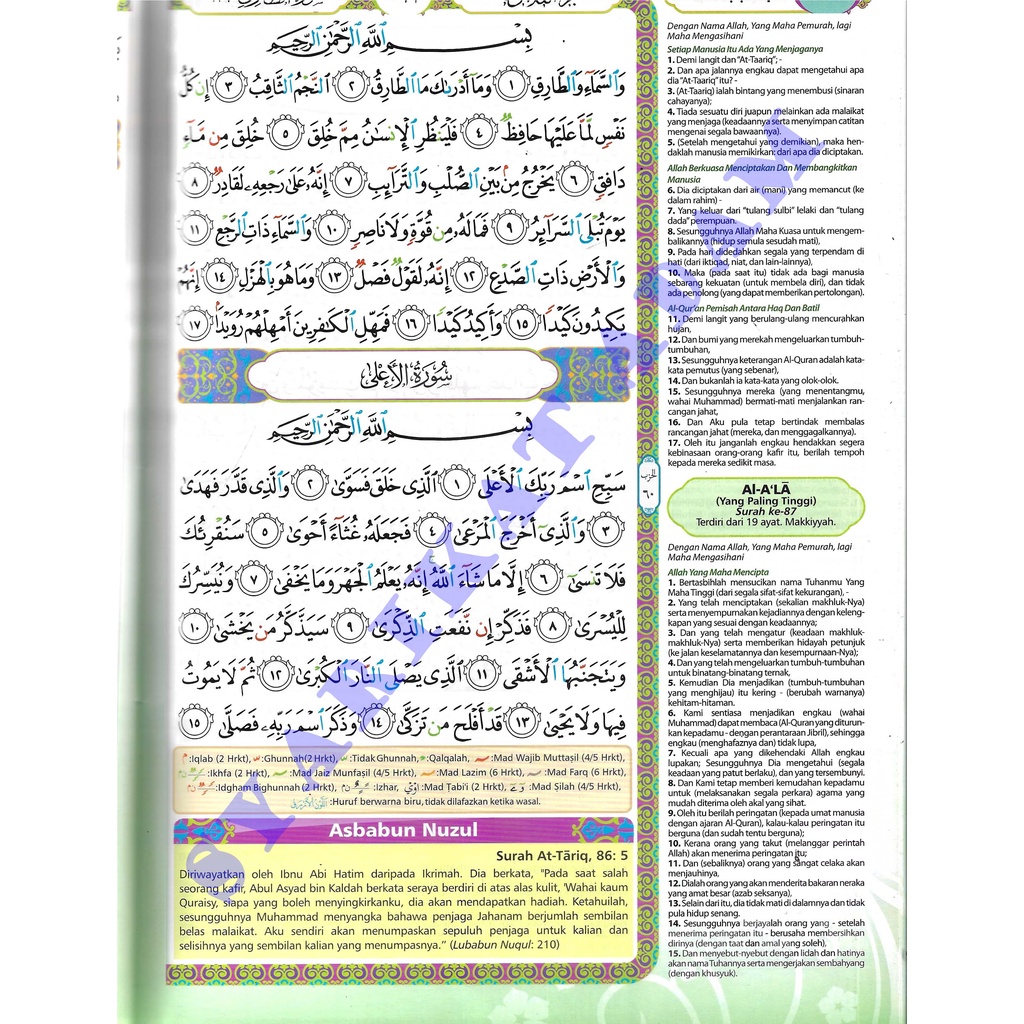 بِسْمِ اللَّهِ الرَّحْمَٰنِ الرَّحِيمِ
وَالسَّمَاءِ وَالطَّارِقِ ١ وَمَا أَدْرَىٰكَ مَا الطَّارِقُ ٢ النَّجْمُ الثَّاقِبُ ٣ إِن كُلُّ
نَفْسٍ لَّمَّا عَلَيْهَا حَافِظٌ ٤ فَلْيَنظُرِ الْإِنسَٰنُ مِمَّ خُلِقَ ٥ خُلِقَ مِن مَّاءٍ
دَافِقٍ ٦ يَخْرُجُ مِن بَيْنِ الصُّلْبِ وَالتَّرَائِبِ ٧ إِنَّهُ عَلَىٰ رَجْعِهِ لَقَادِرٌ ٨
يَوْمَ تُبْلَى السَّرَائِرُ ٩ فَمَا لَهُ مِن قُوَّةٍ وَلَا نَاصِرٍ ١٠ وَالسَّمَاءِ ذَاتِ الرَّجْعِ ١١
وَالْأَرْضِ ذَاتِ الصَّدْعِ ١٢ إِنَّهُ لَقَوْلٌ فَصْلٌ ١٣ وَمَا هُوَ بِالْهَزْلِ ١٤ إِنَّهُمْ
يَكِيدُونَ كَيْدًا ١٥ وَأَكِيدُ كَيْدًا ١٦ فَمَهِّلِ الْكَافِرِينَ أَمْهِلْهُمْ رُوَيْدًا ١٧
سُورَةُ الْأَعْلَىٰ
بِسْمِ اللَّهِ الرَّحْمَٰنِ الرَّحِيمِ
سَبِّحِ اسْمَ رَبِّكَ الْأَعْلَى ١ الَّذِي خَلَقَ فَسَوَّىٰ ٢ وَالَّذِي قَدَّرَ فَهَدَىٰ
٣ وَالَّذِي أَخْرَجَ الْمَرْعَىٰ ٤ فَجَعَلَهُ غُثَاءً أَحْوَىٰ ٥ سَنُقْرِئُكَ
فَلَا تَنسَىٰ ٦ إِلَّا مَا شَاءَ اللَّهُ إِنَّهُ يَعْلَمُ الْجَهْرَ وَمَا يَخْفَىٰ ٧ وَنُيَسِّرُكَ
لِلْيُسْرَىٰ ٨ فَذَكِّرْ إِن نَّفَعَتِ الذِّكْرَىٰ ٩ سَيَذَّكَّرُ مَن يَخْشَىٰ ١٠
وَيَتَجَنَّبُهَا الْأَشْقَى ١١ الَّذِي يَصْلَى النَّارَ الْكُبْرَىٰ ١٢ ثُمَّ لَا يَمُوتُ
فِيهَا وَلَا يَحْيَىٰ ١٣ قَدْ أَفْلَحَ مَن تَزَكَّىٰ ١٤ وَذَكَرَ اسْمَ رَبِّهِ فَصَلَّىٰ ١٥
:Iqlab (2 Hrkt), :Ghunnah(2 Hrkt), :Tidak Ghunnah, :Qalqalah, :Mad Wajib Muttasil (4/5 Hrkt),
:Ikhfa (2 Hrkt), :Mad Jaiz Munfasil (4/5 Hrkt), :Mad Lazim (6 Hrkt), :Mad Farq (6 Hrkt),
:Idgham Bighunnah (2 Hrkt), :Izhar, :Mad Tabi'i (2 Hrkt), :Mad Silah (4/5 Hrkt),
:Huruf berwarna biru, tidak dilafazkan ketika wasal.
Asbabun Nuzul
Surah At-Tāriq, 86: 5
Diriwayatkan oleh Ibnu Abi Hatim daripada Ikrimah. Dia berkata, "Pada saat salah
seorang kafir, Abul Asyad bin Kaldah berkata seraya berdiri di atas alas kulit, 'Wahai kaum
Quraisy, siapa yang boleh menyingkirkanku, dia akan mendapatkan hadiah. Ketahuilah,
sesungguhnya Muhammad menyangka bahawa penjaga Jahanam berjumlah sembilan
belas malaikat. Aku sendiri akan menumpaskan sepuluh penjaga untuk kalian dan
selisihnya yang sembilan kalian yang menumpasnya." (Lubabun Nuqul: 210)
الحزب
٦٠
Dengan Nama Allah, Yang Maha Pemurah, lagi
Maha Mengasihani
Setiap Manusia Itu Ada Yang Menjaganya
1. Demi langit dan "At-Taariq"; -
2. Dan apa jalannya engkau dapat mengetahui apa
dia "At-Taariq" itu? -
3. (At-Taariq) ialah bintang yang menembusi (sinaran
cahayanya);
4. Tiada sesuatu diri juapun melainkan ada malaikat
yang menjaga (keadaannya serta menyimpan catitan
mengenai segala bawaannya).
5. (Setelah mengetahui yang demikian), maka hen-
daklah manusia memikirkan: dari apa dia diciptakan.
Allah Berkuasa Menciptakan Dan Membangkitkan
Manusia
6. Dia diciptakan dari air (mani) yang memancut (ke
dalam rahim) -
7. Yang keluar dari "tulang sulbi" lelaki dan "tulang
dada" perempuan.
8. Sesungguhnya Allah Maha Kuasa untuk mengem-
balikannya (hidup semula sesudah mati),
9. Pada hari didedahkan segala yang terpendam di
hati (dari iktiqad, niat, dan lain-lainnya),
10. Maka (pada saat itu) tidak ada bagi manusia
sebarang kekuatan (untuk membela diri), dan tidak
ada penolong (yang dapat memberikan pertolongan).
Al-Qur'an Pemisah Antara Haq Dan Batil
11. Demi langit yang berulang-ulang mencurahkan
hujan,
12. Dan bumi yang merekah mengeluarkan tumbuh-
tumbuhan,
13. Sesungguhnya keterangan Al-Quran adalah kata-
kata pemutus (yang sebenar),
14. Dan bukanlah ia kata-kata yang olok-olok.
15. Sesungguhnya mereka (yang menentangmu,
wahai Muhammad) bermati-mati menjalankan ran-
cangan jahat,
16. Dan Aku pula tetap bertindak membalas
rancangan jahat (mereka, dan menggagalkannya).
17. Oleh itu janganlah engkau hendakkan segera
kebinasaan orang-orang kafir itu, berilah tempoh
kepada mereka sedikit masa.
Al-A'LĀ
(Yang Paling Tinggi)
Surah ke-87
Terdiri dari 19 ayat. Makkiyyah.
Dengan Nama Allah, Yang Maha Pemurah, lagi
Maha Mengasihani
Allah Yang Maha Mencipta
1. Bertasbihlah mensucikan nama Tuhanmu Yang
Maha Tinggi (dari segala sifat-sifat kekurangan), -
2. Yang telah menciptakan (sekalian makhluk-Nya)
serta menyempurnakan kejadiannya dengan keleng-
kapan yang sesuai dengan keadaannya;
3. Dan yang telah mengatur (keadaan makhluk-
makhluk-Nya) serta memberikan hidayah petunjuk
(ke jalan keselamatannya dan kesempurnaan-Nya);
4. Dan yang telah mengeluarkan tumbuh-tumbuhan
untuk binatang-binatang ternak,
5. Kemudian Dia menjadikan (tumbuh-tumbuhan
yang menghijau) itu kering - (berubah warnanya)
kehitam-hitaman.
6. Kami sentiasa menjadikan engkau (wahai
Muhammad) dapat membaca (Al-Quran yang diturun-
kan kepadamu - dengan perantaraan Jibril), sehingga
engkau (menghafaznya dan) tidak lupa,
7. Kecuali apa yang dikehendaki Allah engkau
lupakan; Sesungguhnya Dia mengetahui (segala
keadaan yang patut berlaku), dan yang tersembunyi.
8. Dan Kami tetap memberi kemudahan kepadamu
untuk (melaksanakan segala perkara) agama yang
mudah diterima oleh akal yang sihat.
9. Oleh itu berilah peringatan (kepada umat manusia
dengan ajaran Al-Quran), kalau-kalau peringatan itu
berguna (dan sudah tentu berguna);
10. Kerana orang yang takut (melanggar perintah
Allah) akan menerima peringatan itu;
11. Dan (sebaliknya) orang yang sangat celaka akan
menjauhinya,
12. Dialah orang yang akan menderita bakaran neraka
yang amat besar (azab seksanya),
13. Selain dari itu, dia tidak mati di dalamnya dan tidak
pula hidup senang.
14. Sesungguhnya berjayalah orang yang - setelah
menerima peringatan itu - berusaha membersihkan
dirinya (dengan taat dan amal yang soleh),
15. Dan menyebut-nyebut dengan lidah dan hatinya
akan nama Tuhannya serta mengerjakan sembahyang
(dengan khusyuk).